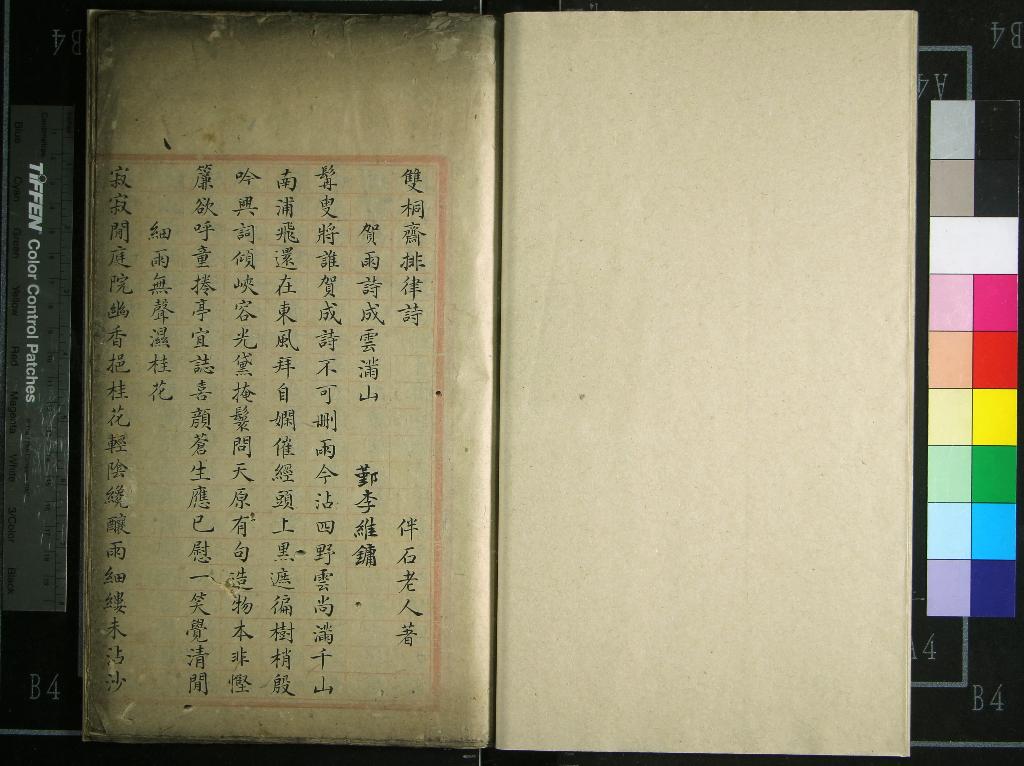 雙桐齋排律詩 伴石老人著
賀雨詩成雲滿山 鄞李維鏞
髯叟將誰賀成詩不可刪雨今沾四野雲尚滿千山
南浦飛還在東風拜自嫻催經頭上黑遮徧樹梢殷
吟興詞傾峽容光黛掩鬟問天原有句造物本非慳
簾欲呼童捲亭宜誌喜顏蒼生應已慰一笑覺清閒
細雨無聲濕桂花
寂寂閒庭院幽香挹桂花輕陰纔釀雨細縷未沾沙
TIFFEN Color Control Patches
Blue Cyan Green Yellow Red Magenta White 3/Color Black
B4
B4
A4
B4
A4
B4